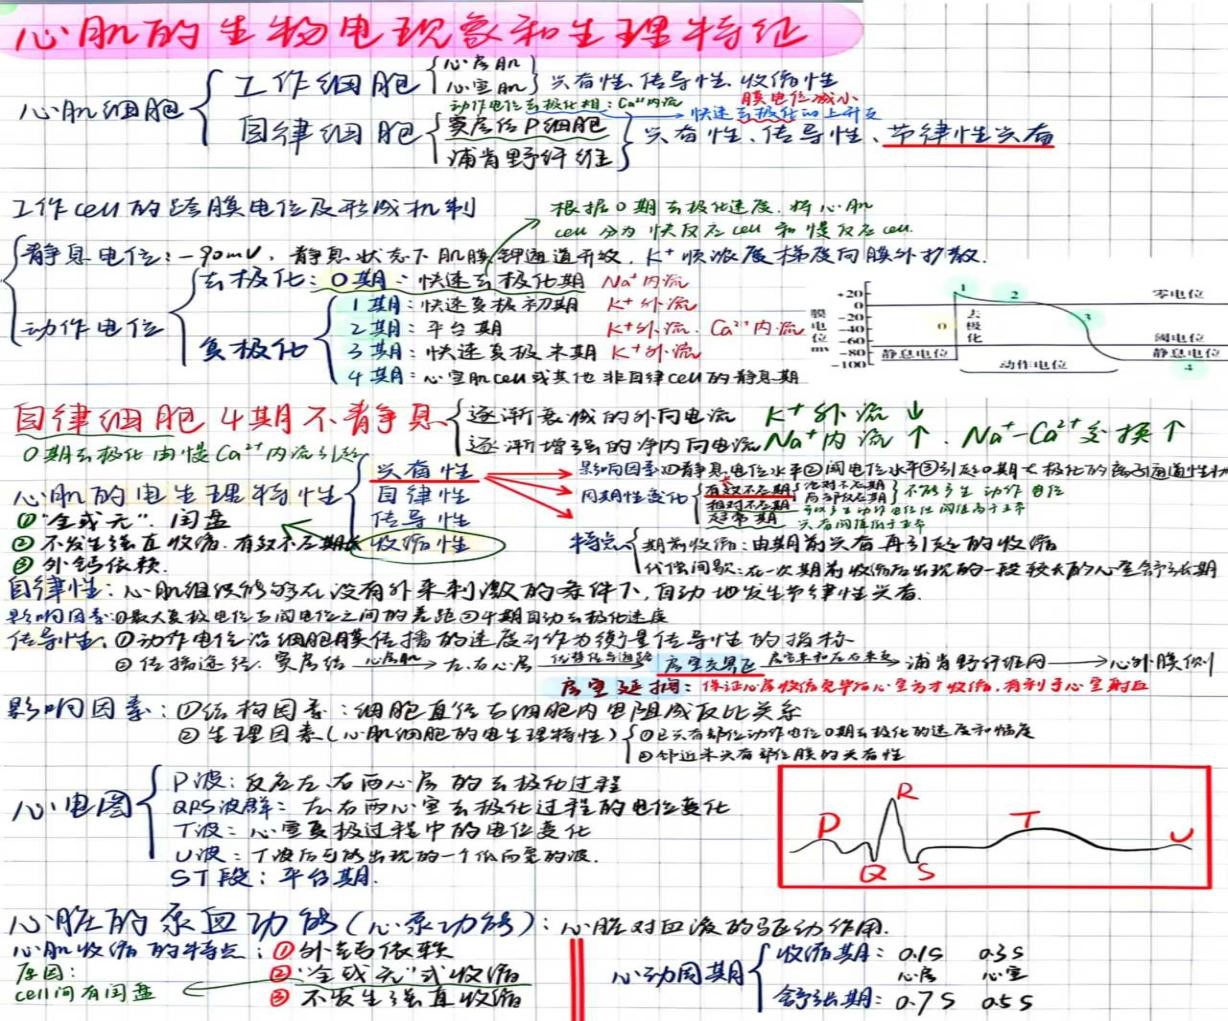 心肌的生物电现象和生理特征
心肌细胞
工作细胞
心房肌
心室肌
兴奋性、传导性、收缩性
动作电位去极化相：Ca²⁺内流
膜电位减小
快速去极化的上升支
自律细胞
窦房结P细胞
浦肯野纤维
兴奋性、传导性、节律性兴奋
工作cell的跨膜电位及形成机制
根据0期去极化速度，将心肌
cell分为快反应cell和慢反应cell.
静息电位：-90mV，静息状态下肌膜钾通道开放，K⁺顺浓度梯度向膜外扩散.
动作电位
去极化：0期：快速去极化期 Na⁺内流
复极化
1期：快速复极初期 K⁺外流
2期：平台期 K⁺外流、Ca²⁺内流
3期：快速复极末期 K⁺外流
4期：心室肌cell或其他非自律cell的静息期
膜电位 mv
+20
0
-20
-40
-60
-80
-100
0
1
2
3
4
去极化
零电位
阈电位
静息电位
静息电位
动作电位
自律细胞4期不静息
逐渐衰减的外向电流 K⁺外流↓
逐渐增强的净内向电流 Na⁺内流↑、Na⁺-Ca²⁺交换↑
0期去极化由慢Ca²⁺内流引起
心肌的电生理特性
兴奋性
自律性
传导性
收缩性
影响因素①静息电位水平②阈电位水平③引起0期去极化的离子通道性状
周期性变化
有效不应期
绝对不应期
局部反应期
不能产生动作电位
相对不应期
超常期
兴奋阈值低于正常
特点
期前收缩：由期前兴奋再引起的收缩
代偿间歇：在一次期前收缩后出现的一段较长的心室舒张期
①“全或无”. 闰盘
②不发生强直收缩. 有效不应期长
③外钙依赖.
自律性：心肌组织能够在没有外来刺激的条件下，自动地发生节律性兴奋.
影响因素：①最大复极电位与阈电位之间的差距②4期自动去极化速度
传导性：①动作电位沿细胞膜传播的速度可作为衡量传导性的指标
②传播途径：窦房结 心房肌→左、右心房 优势传导通路→房室交界区 房室束和左右束支→浦肯野纤维网→心外膜侧
房室延搁：保证心房收缩完毕后心室方才收缩，有利于心室射血
影响因素：①结构因素：细胞直径与细胞内电阻成反比关系
②生理因素（心肌细胞的电生理特性）
①已兴奋部位动作电位0期去极化的速度和幅度
②邻近未兴奋部位膜的兴奋性
心电图
P波：反应左、右两心房的去极化过程
QRS波群：左、右两心室去极化过程的电位变化
T波：心室复极过程中的电位变化
U波：T波后可能出现的一个低而宽的波.
ST段：平台期.
P
Q
R
S
T
U
心脏的泵血功能（心泵功能）：心脏对血液的驱动作用.
心肌收缩的特点：①外钙依赖
②“全或无”式收缩
③不发生强直收缩
原因：
cell间有闰盘
心动周期
收缩期：0.1S 0.3S
心房 心室
舒张期：0.7S 0.5S